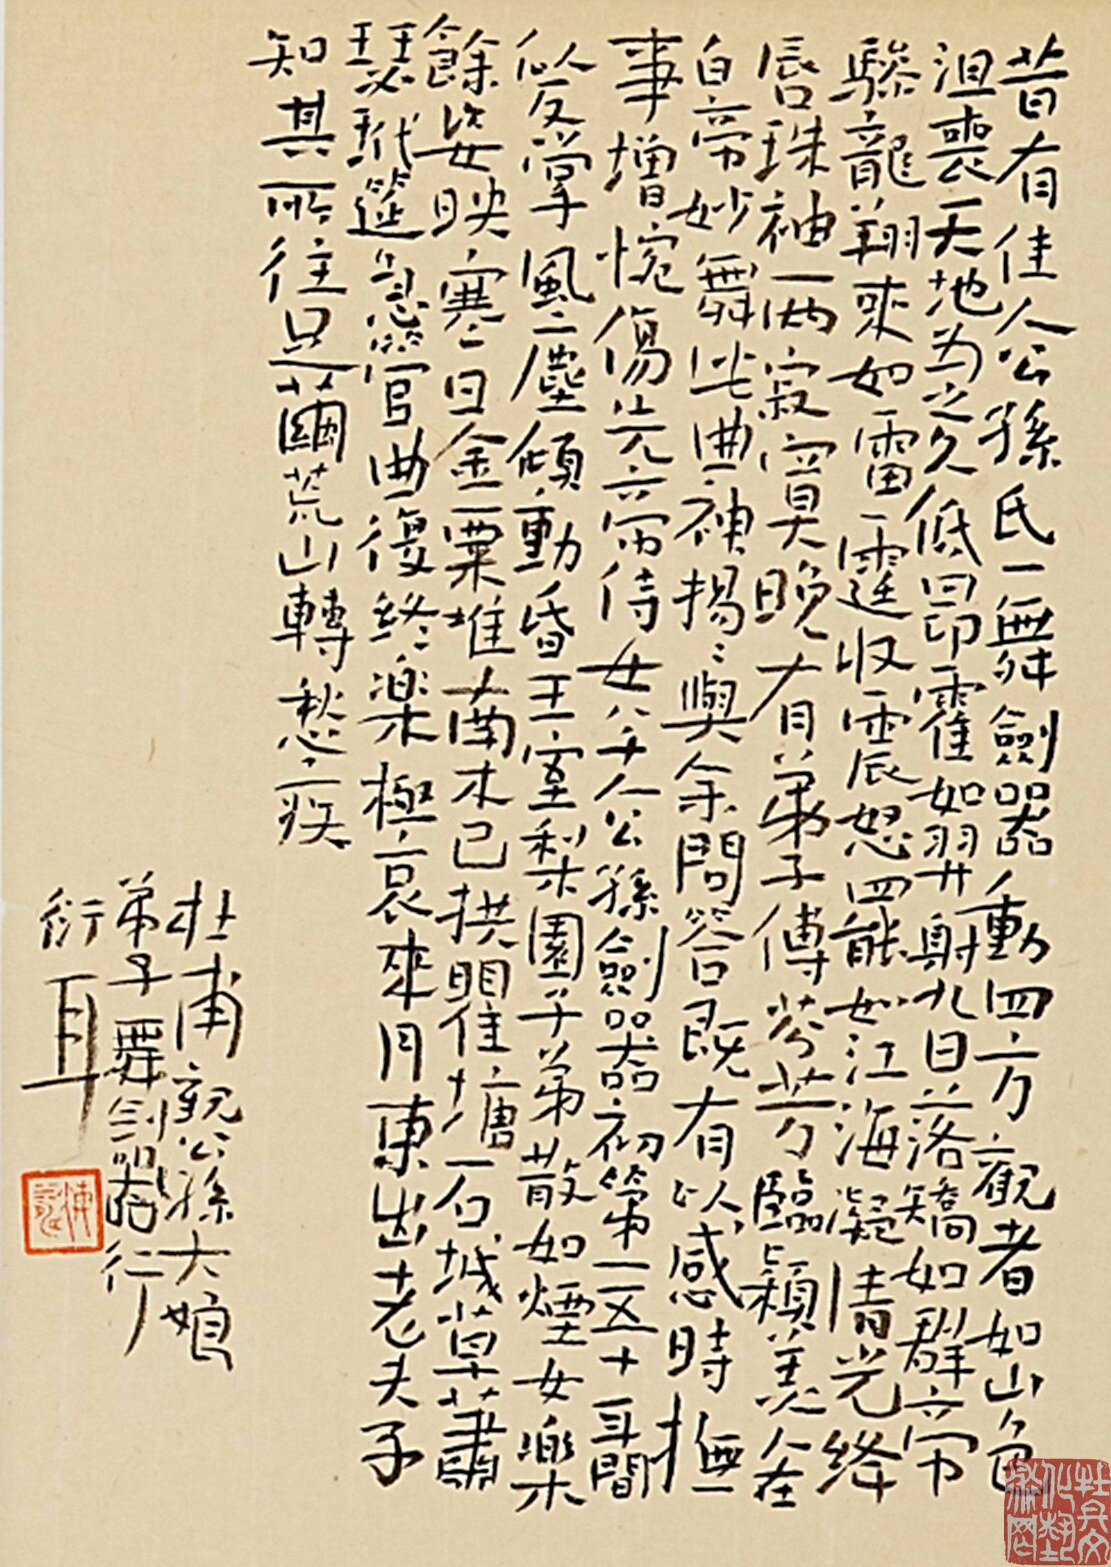 昔有佳人公孫氏一舞劍器動四方觀者如山色
沮喪天地为之久低昂霍如羿射九日落矯如群帝
驂龍翔來如雷霆收震怒罷如江海凝清光絳
唇珠袖兩寂寞晚有弟子傳芬芳臨潁美人在
白帝妙舞此曲神揚〻與余問答既有以感時撫
事增惋傷先帝侍女八千人公孫劍器初第一五十年間
似反掌風塵傾動昏王室梨園子弟散如煙女樂
餘姿映寒日金粟堆南木已拱瞿塘石城草蕭
瑟玳筵急管曲復終樂極哀來月東出老夫不
知其所往足繭荒山轉愁疾
杜甫觀公孫大娘
弟子舞劍器行
衍耳